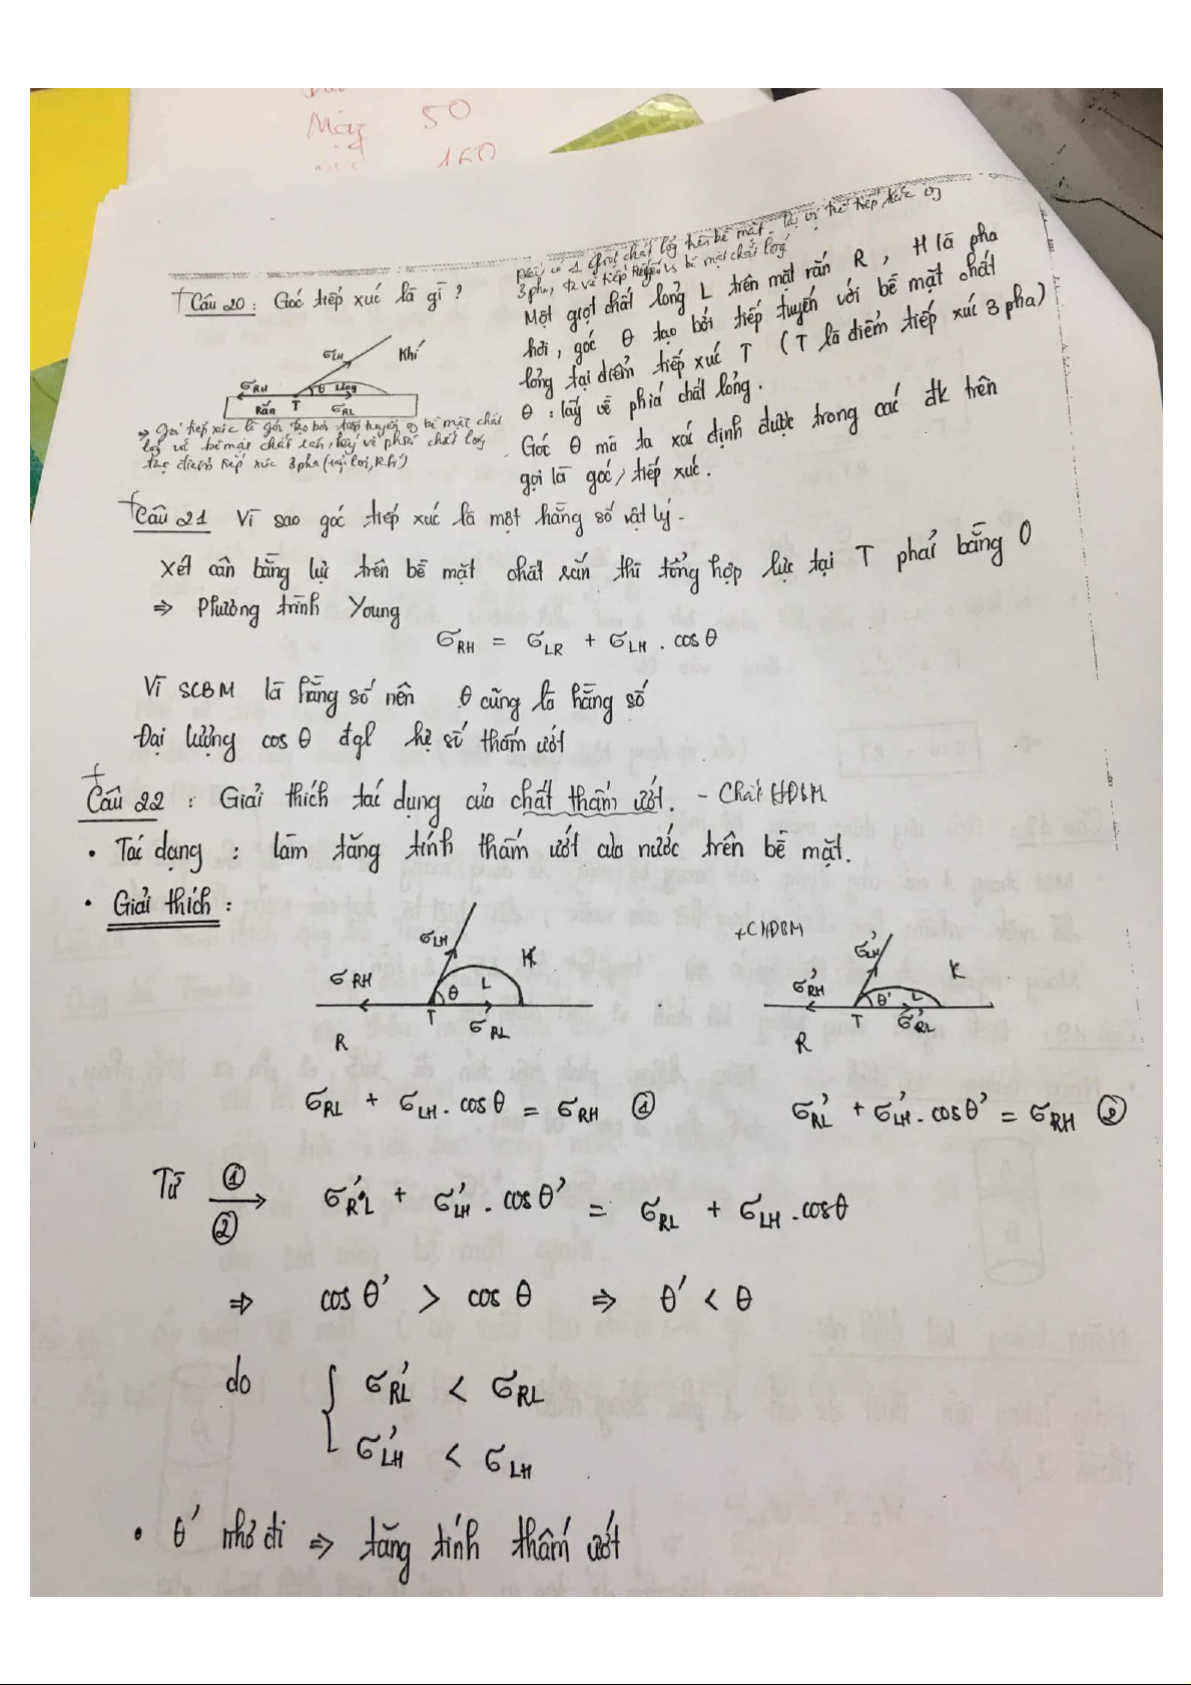 Máy 50
160
Câu 20 : Góc tiếp xúc là gì ?
σLH Khí
σRH θ Lỏng
Rắn T σRL
tại điểm tiếp xúc 3 pha
1 giọt chất lỏng trên bề mặt
Một giọt chất lỏng L trên mặt rắn R , H là pha
hơi , góc θ tạo bởi tiếp tuyến với bề mặt chất
lỏng tại điểm tiếp xúc T ( T là điểm tiếp xúc 3 pha )
θ : lấy về phía chất lỏng .
Góc θ mà ta xác định được trong các đk trên
gọi là góc tiếp xúc .
Câu 21 Vì sao góc tiếp xúc là một hằng số vật lý -
Xét cân bằng lực trên bề mặt chất rắn thì tổng hợp lực tại T phải bằng 0
⇒ Phương trình Young
σRH = σLR + σLH . cos θ
Vì SCBM là hằng số nên θ cũng là hằng số
Đại lượng cos θ đgl hệ số thấm ướt
Câu 22 : Giải thích tác dụng của chất thấm ướt. - Chất HĐBM
• Tác dụng : làm tăng tính thấm ướt của nước trên bề mặt.
• Giải thích :
σLH H
σRH θ L
T σRL
R
+CHĐBM
σ'LH K
σ'RH θ' L
T σ'RL
R
σRL + σLH . cosθ = σRH ①
σ'RL + σ'LH . cosθ' = σRH ②
Từ ①
②
→ σ'RL + σ'LH . cosθ' = σRL + σLH . cosθ
⇒ cos θ' > cos θ ⇒ θ' < θ
do { σ'RL < σRL
σ'LH < σLH
• θ' nhỏ đi ⇒ tăng tính thấm ướt